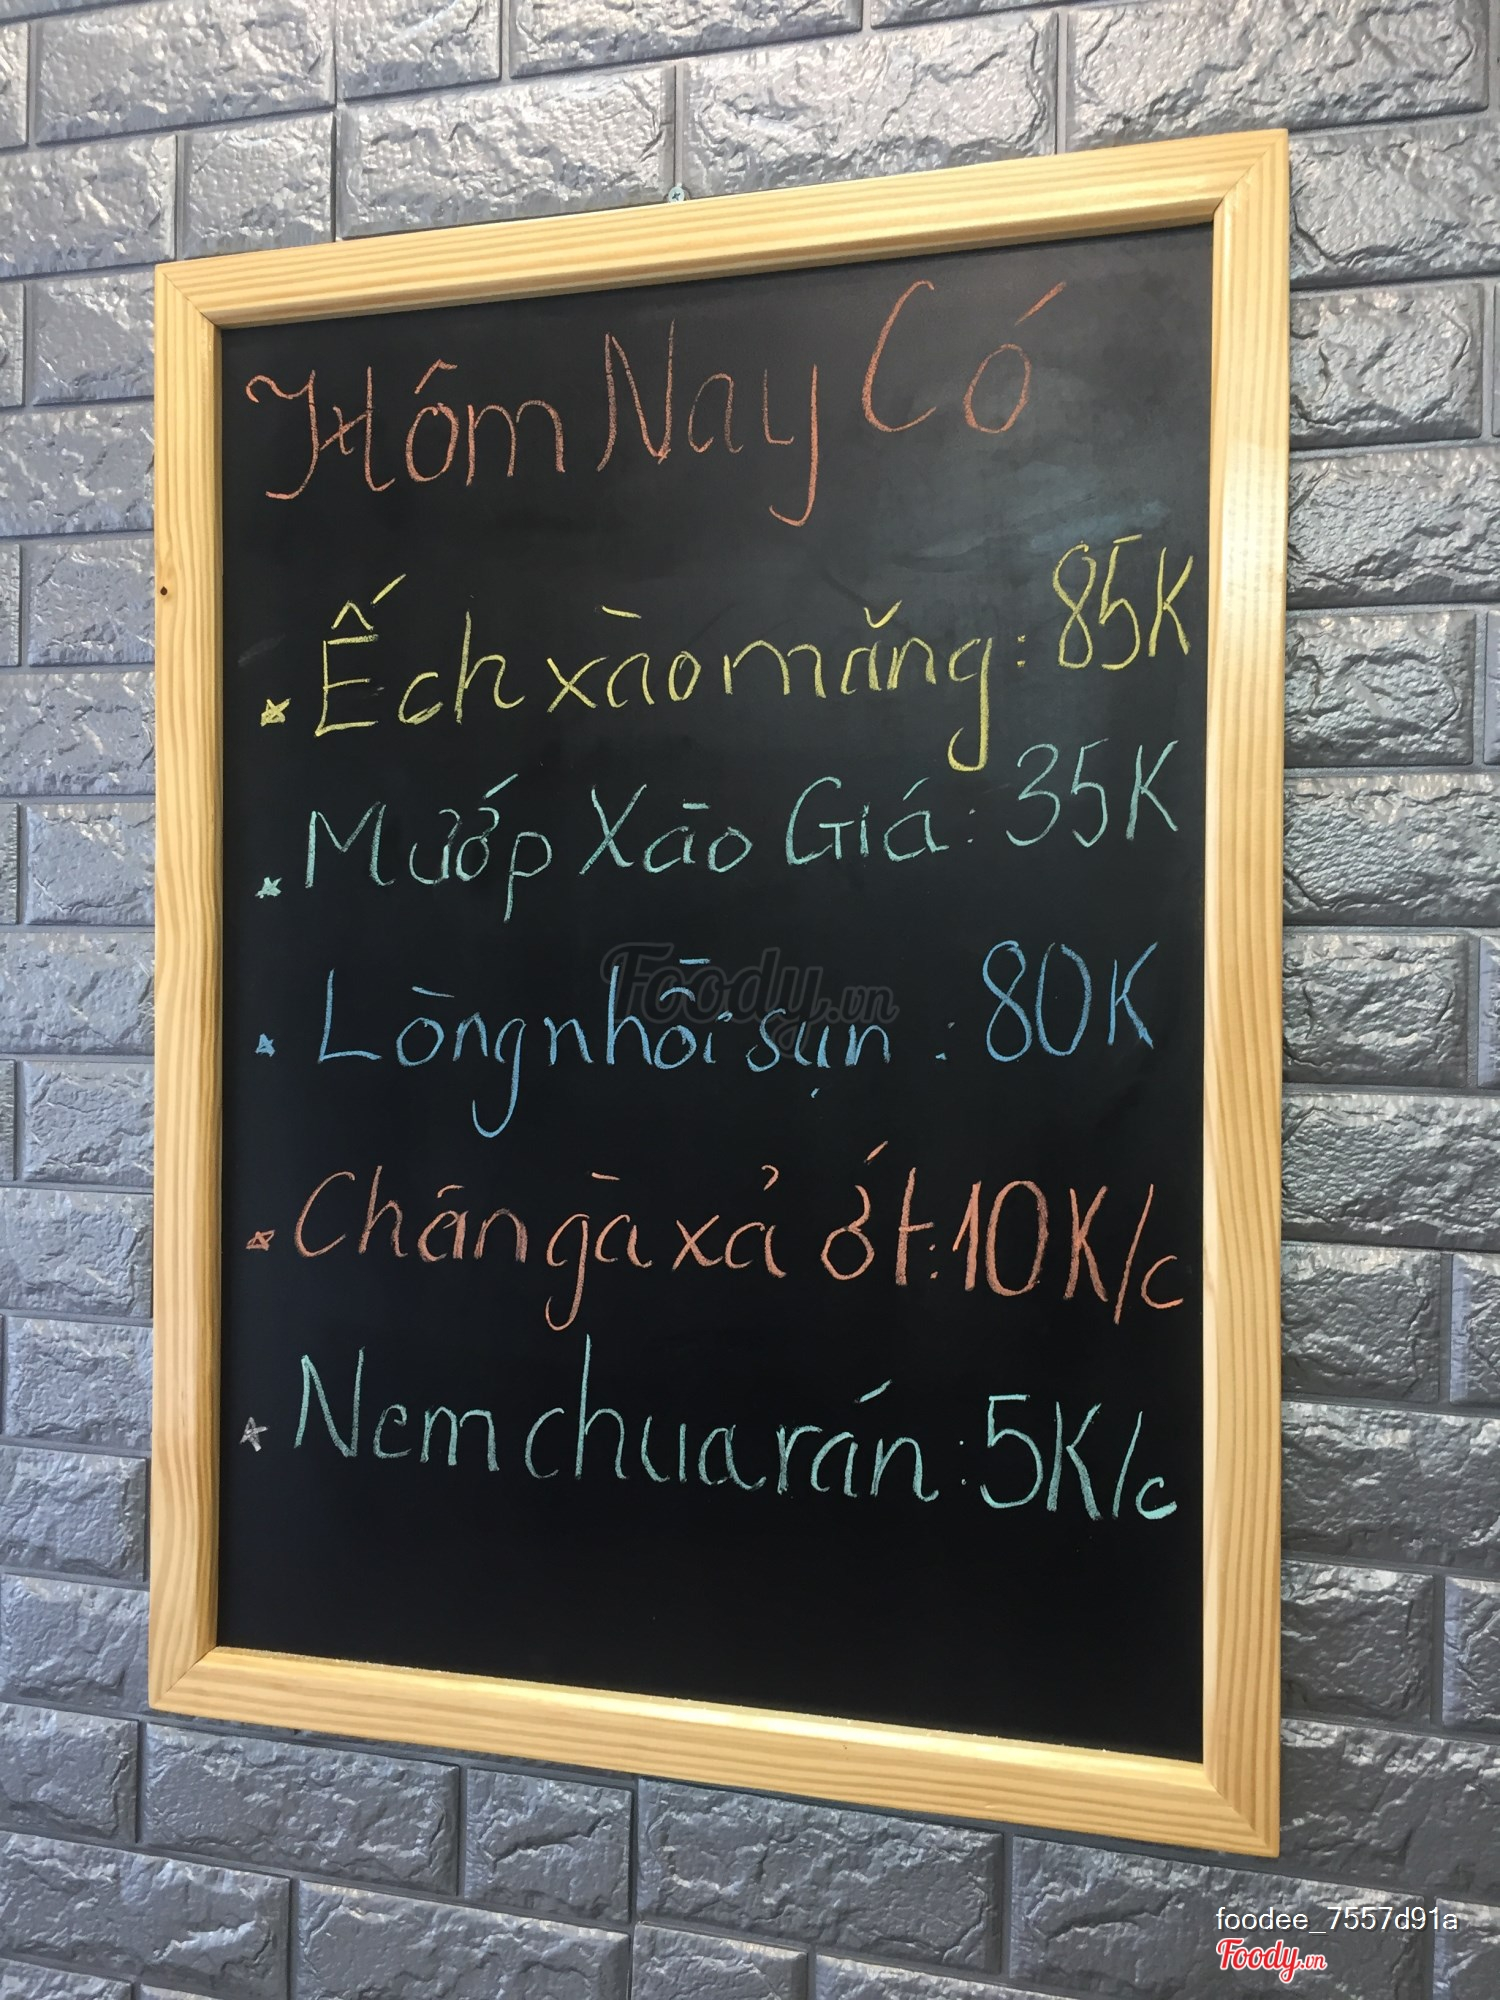 Hôm Nay Có
* Ếch xào măng : 85K
* Mướp Xào Giá : 35K
* Lòng nhồi sụn : 80K
* Chân gà xả ớt : 10K/c
* Nem chua rán : 5K/c
Foody.vn
foodee_7557d91a
Foody.vn